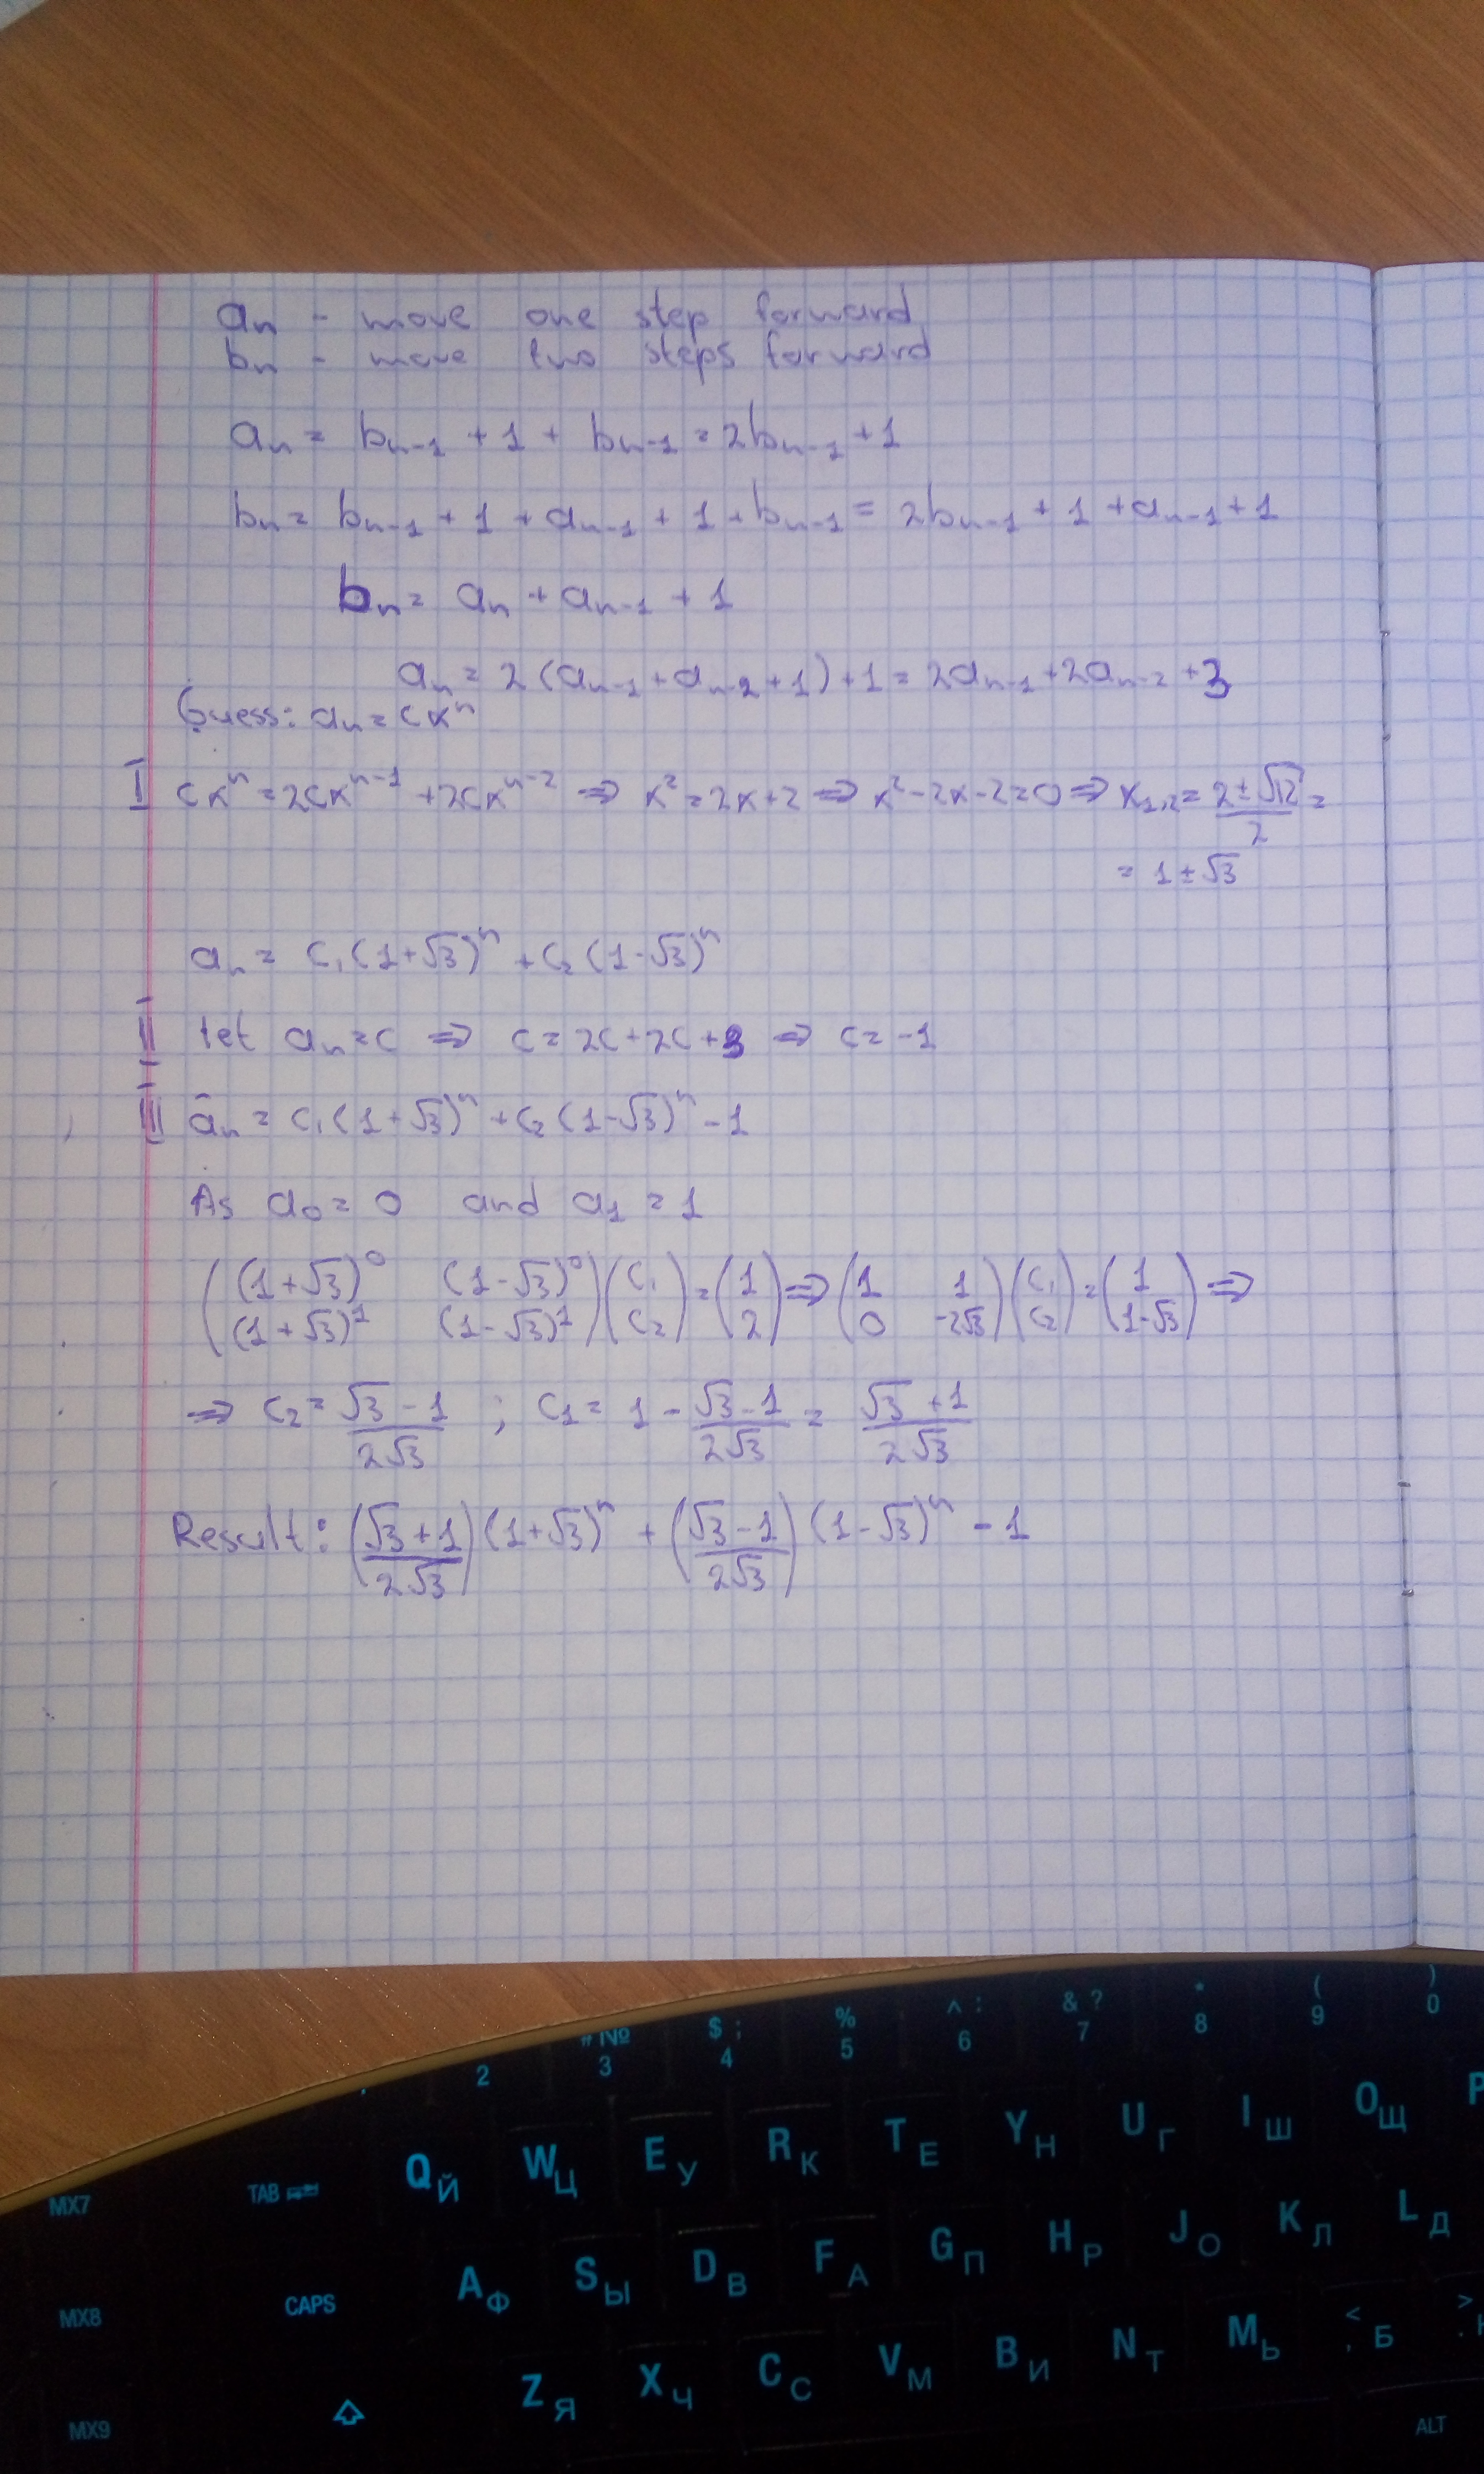 aₙ - move one step forward
bₙ - move two steps forward
aₙ = bₙ₋₁ + 1 + bₙ₋₁ = 2bₙ₋₁ + 1
bₙ = bₙ₋₁ + 1 + aₙ₋₁ + 1 + bₙ₋₁ = 2bₙ₋₁ + 1 + aₙ₋₁ + 1
bₙ = aₙ + aₙ₋₁ + 1
aₙ = 2(aₙ₋₁ + aₙ₋₂ + 1) + 1 = 2aₙ₋₁ + 2aₙ₋₂ + 3
Guess: aₙ = cxⁿ
I cxⁿ = 2cxⁿ⁻¹ + 2cxⁿ⁻² ⇒ x² = 2x + 2 ⇒ x² - 2x - 2 = 0 ⇒ x₁,₂ = (2 ± √12)/2 =
= 1 ± √3
aₙ = c₁(1+√3)ⁿ + c₂(1-√3)ⁿ
II let aₙ = c ⇒ c = 2c + 2c + 3 ⇒ c = -1
III āₙ = c₁(1+√3)ⁿ + c₂(1-√3)ⁿ - 1
As a₀ = 0 and a₁ = 1
((1+√3)⁰ (1-√3)⁰; (1+√3)¹ (1-√3)¹)(c₁; c₂) = (1; 2) ⇒ (1 1; 0 -2√3)(c₁; c₂) = (1; 1-√3) ⇒
⇒ c₂ = (√3 - 1)/(2√3) ; c₁ = 1 - (√3 - 1)/(2√3) = (√3 + 1)/(2√3)
Result: ((√3 + 1)/(2√3))(1+√3)ⁿ + ((√3 - 1)/(2√3))(1-√3)ⁿ - 1
2 # № 3 $ ; 4 % 5 ^ : 6 & ? 7 * 8 ( 9 ) 0
MX7 TAB Q Й W Ц E У R К T Е Y Н U Г I Ш O Щ P
MX8 CAPS A Ф S Ы D В F А G П H Р J О K Л L Д
MX9 Z Я X Ч C С V М B И N Т M Ь < , Б > .
ALT